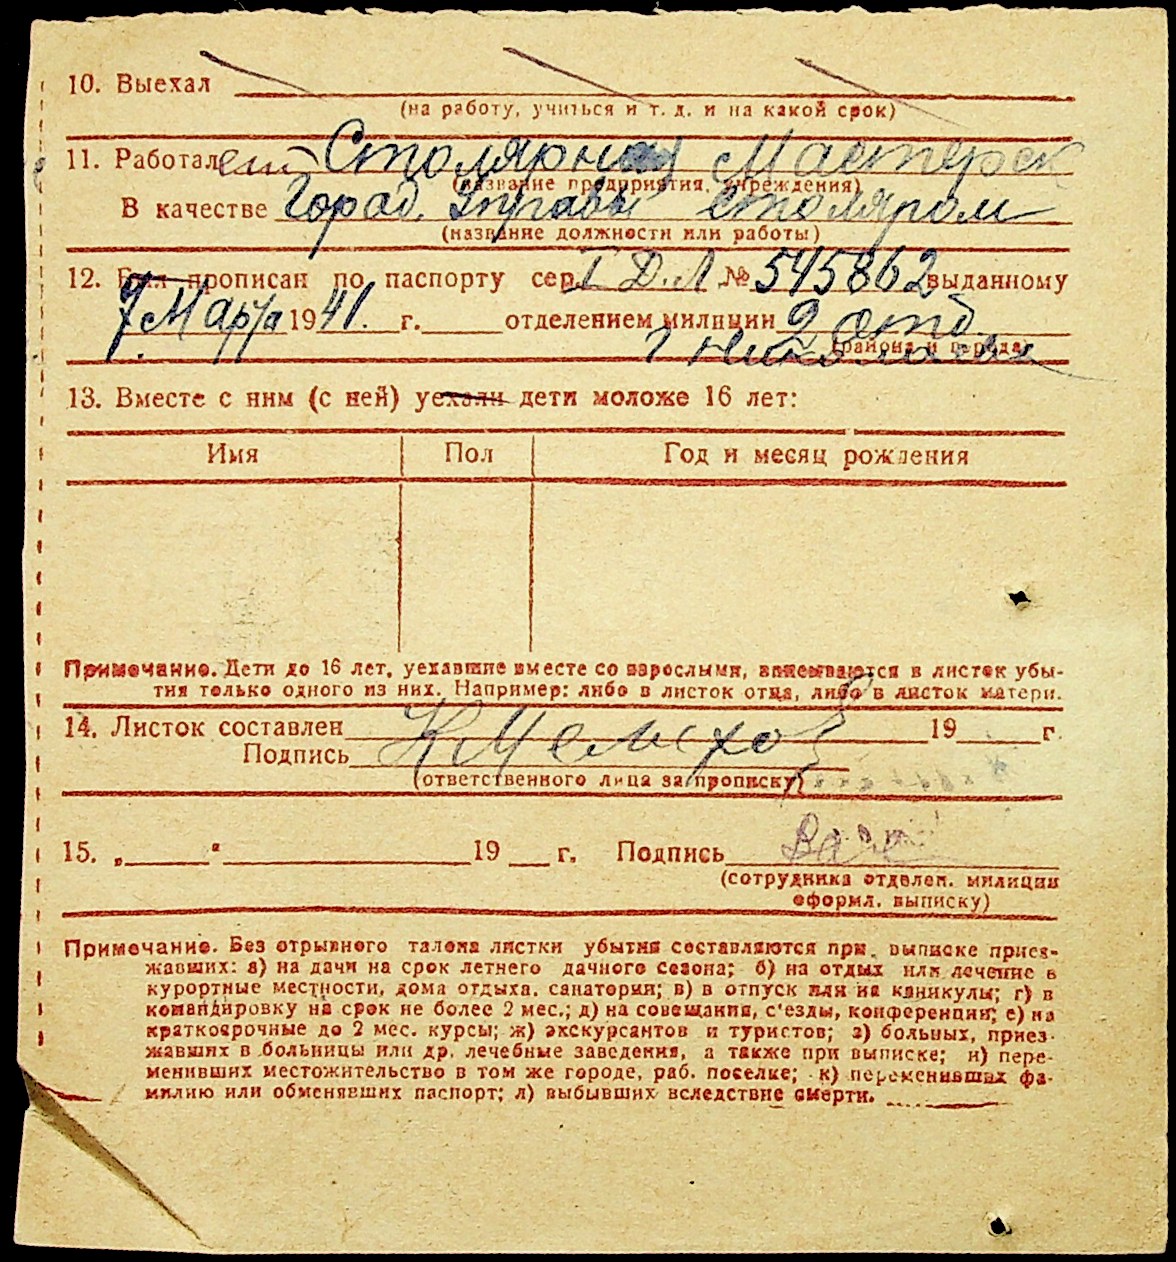 10. Выехал
(на работу, учиться и т. д. и на какой срок)
11. Работает Столярн Мастерск
(название предприятия, учреждения)
В качестве Город. Управы столяром
(название должности или работы)
12. Был прописан по паспорту сер. I Д.Л № 545862 выданному
7 Марта 1941. г. отделением милиции 2 отд
(района и города)
г Николаева
13. Вместе с ним (с ней) уехали дети моложе 16 лет:
Имя Пол Год и месяц рождения
Примечание. Дети до 16 лет, уехавшие вместе со взрослыми, вписываются в листок убы-
тия только одного из них. Например: либо в листок отца, либо в листок матери.
14. Листок составлен 19 г.
Подпись
(ответственного лица за прописку)
15. „ “ 19 г. Подпись
(сотрудника отделен. милиции
оформл. выписку)
Примечание. Без отрывного талона листки убытия составляются при выписке приез-
жавших: а) на дачи на срок летнего дачного сезона; б) на отдых или лечение в
курортные местности, дома отдыха, санатории; в) в отпуск или на каникулы; г) в
командировку на срок не более 2 мес.; д) на совещания, с'езды, конференции; е) на
краткосрочные до 2 мес. курсы; ж) экскурсантов и туристов; з) больных, приез-
жавших в больницы или др. лечебные заведения, а также при выписке; и) пере-
менивших местожительство в том же городе, раб. поселке; к) переменивших фа-
милию или обменявших паспорт; л) выбывших вследствие смерти.